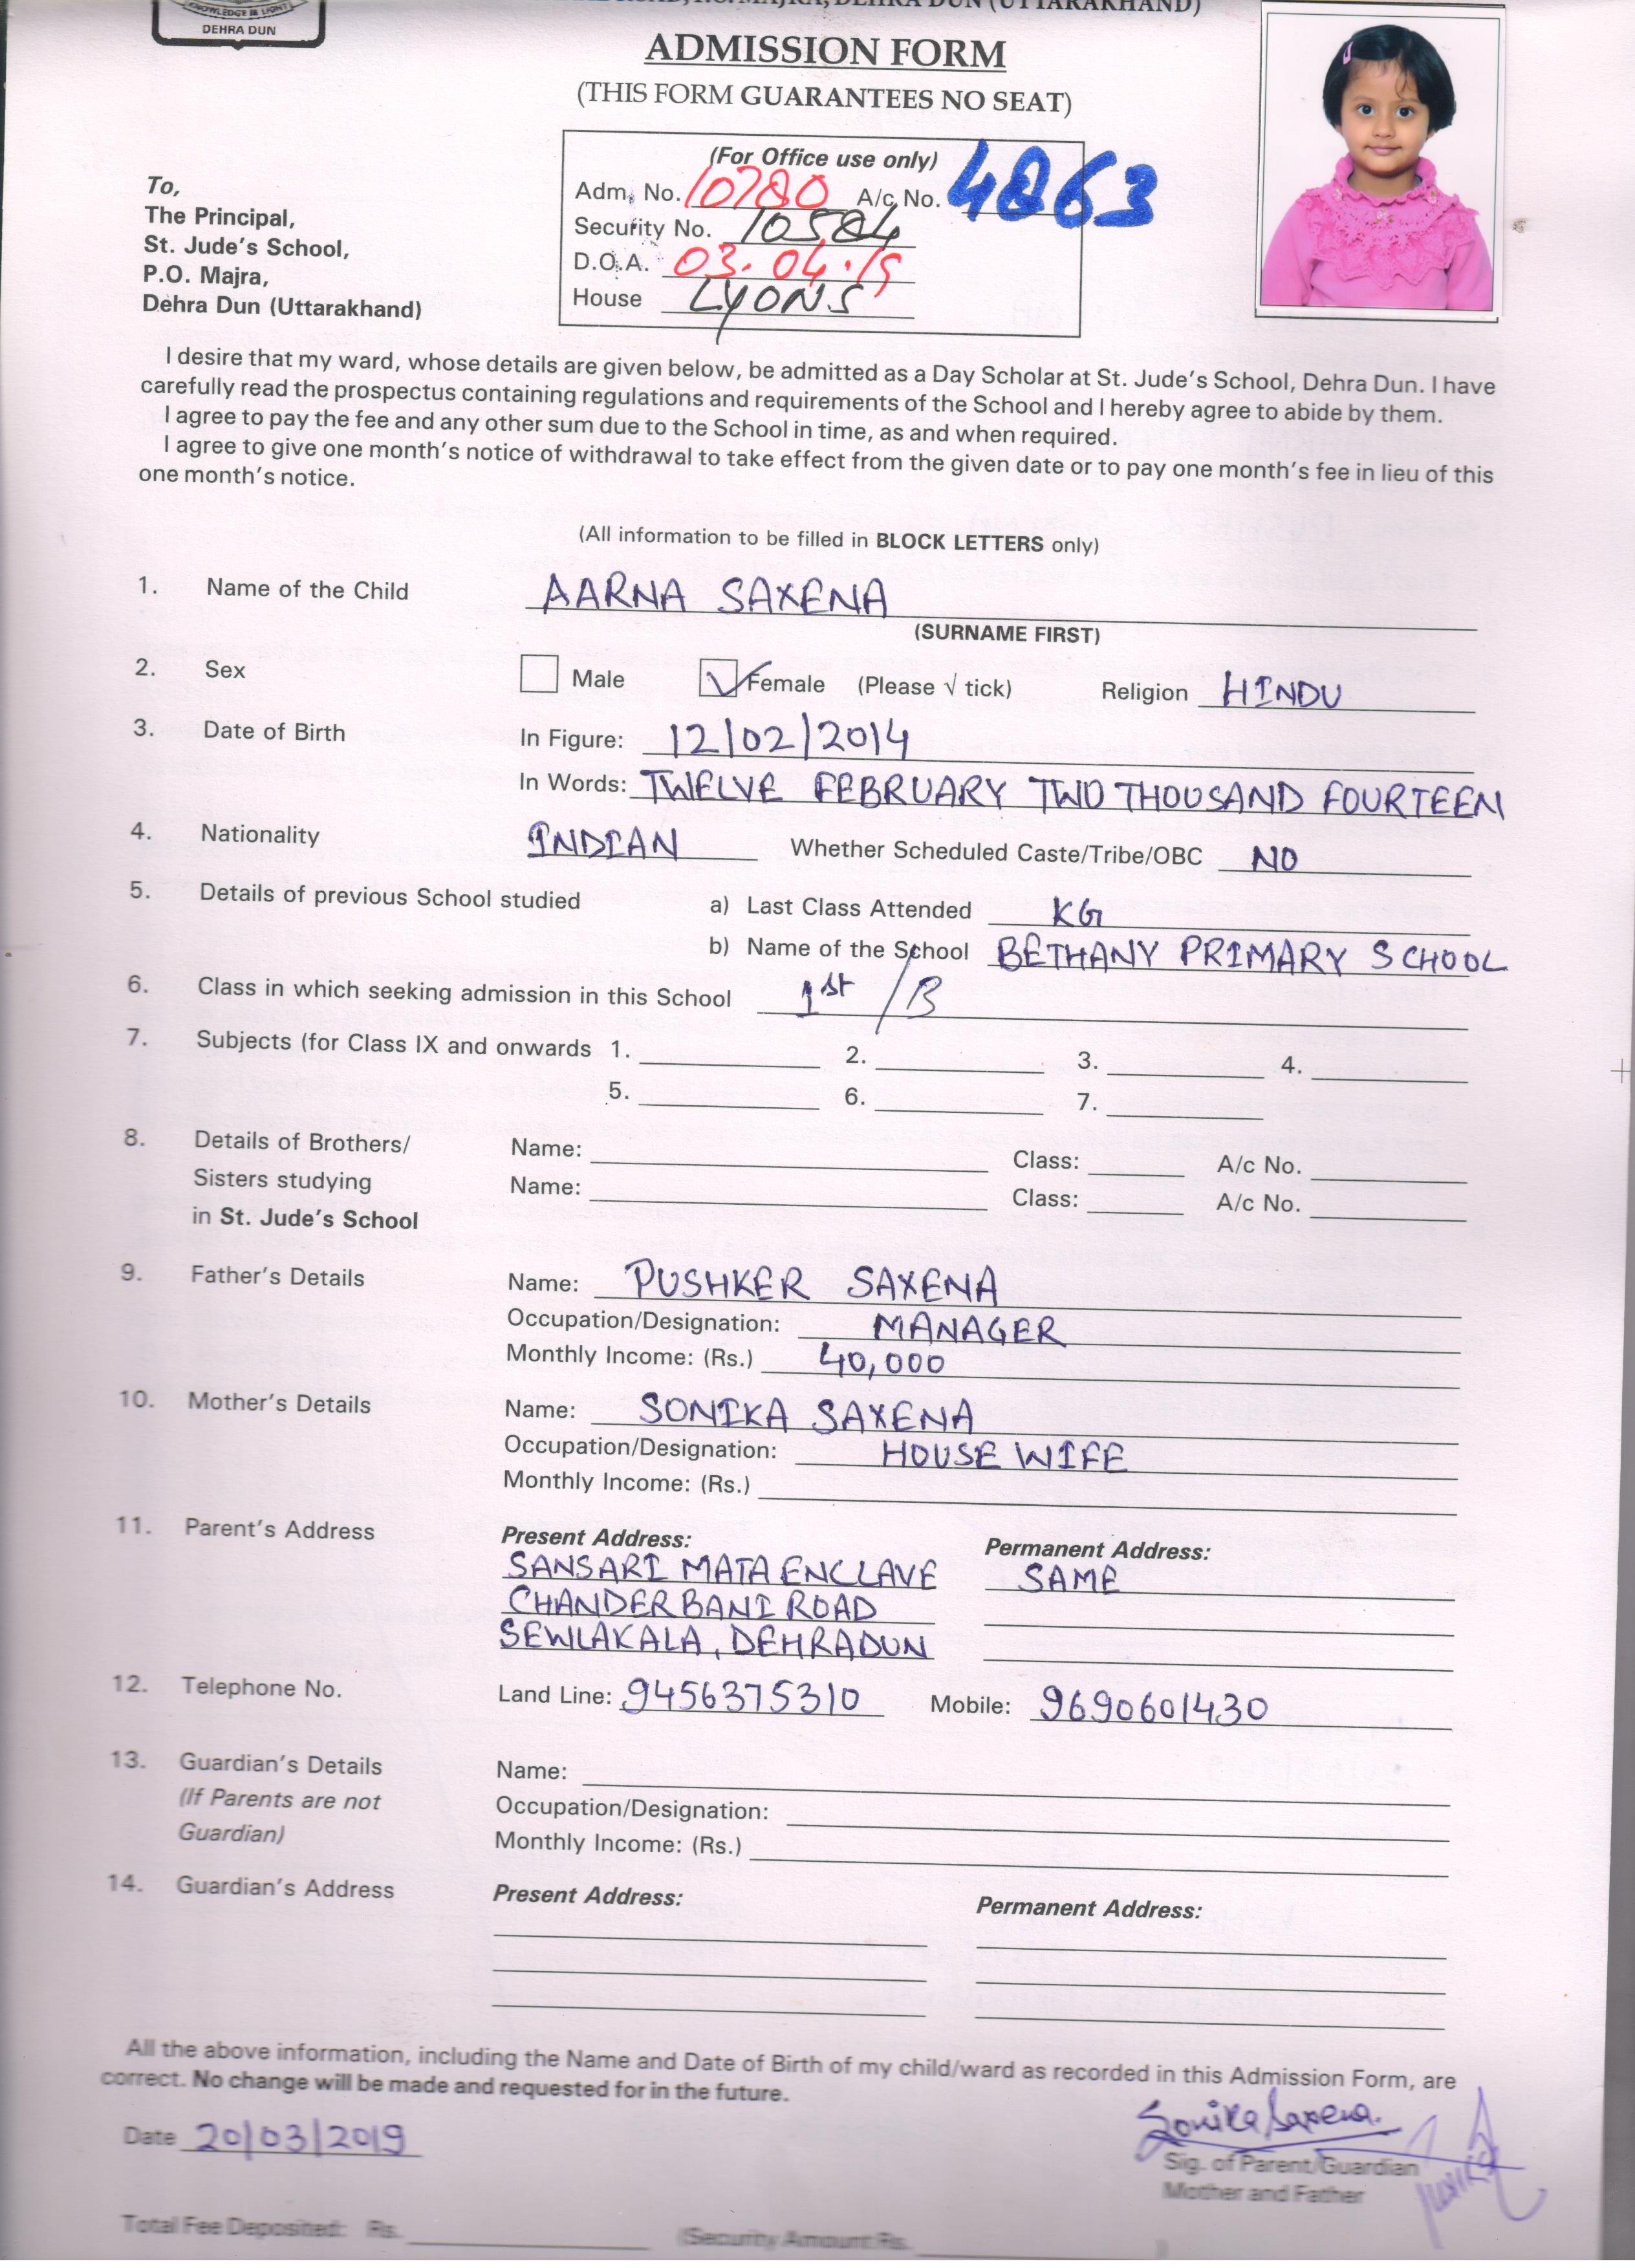 KNOWLEDGE IS LIGHT
DEHRA DUN
ROAD, P.O. MAJRA, DEHRA DUN (UTTARAKHAND)
ADMISSION FORM
(THIS FORM GUARANTEES NO SEAT)
(For Office use only)
Adm. No. 10780 A/c No. 4863
Security No. 10584
D.O.A. 03.04.19
House LYONS
To,
The Principal,
St. Jude's School,
P.O. Majra,
Dehra Dun (Uttarakhand)
I desire that my ward, whose details are given below, be admitted as a Day Scholar at St. Jude's School, Dehra Dun. I have
carefully read the prospectus containing regulations and requirements of the School and I hereby agree to abide by them.
I agree to pay the fee and any other sum due to the School in time, as and when required.
I agree to give one month's notice of withdrawal to take effect from the given date or to pay one month's fee in lieu of this
one month's notice.
(All information to be filled in BLOCK LETTERS only)
1. Name of the Child AARNA SAXENA
(SURNAME FIRST)
2. Sex Male Female (Please √ tick) Religion HINDU
3. Date of Birth In Figure: 12/02/2014
In Words: TWELVE FEBRUARY TWO THOUSAND FOURTEEN
4. Nationality INDIAN Whether Scheduled Caste/Tribe/OBC NO
5. Details of previous School studied a) Last Class Attended KG
b) Name of the School BETHANY PRIMARY SCHOOL
6. Class in which seeking admission in this School 1st /B
7. Subjects (for Class IX and onwards 1. 2. 3. 4.
5. 6. 7.
8. Details of Brothers/ Name: Class: A/c No.
Sisters studying Name: Class: A/c No.
in St. Jude's School
9. Father's Details Name: PUSHKER SAXENA
Occupation/Designation: MANAGER
Monthly Income: (Rs.) 40,000
10. Mother's Details Name: SONIKA SAXENA
Occupation/Designation: HOUSE WIFE
Monthly Income: (Rs.)
11. Parent's Address Present Address: Permanent Address:
SANSARI MATA ENCLAVE SAME
CHANDERBANI ROAD
SEWLAKALA, DEHRADUN
12. Telephone No. Land Line: 9456375310 Mobile: 9690601430
13. Guardian's Details Name:
(If Parents are not Occupation/Designation:
Guardian) Monthly Income: (Rs.)
14. Guardian's Address Present Address: Permanent Address:
All the above information, including the Name and Date of Birth of my child/ward as recorded in this Admission Form, are
correct. No change will be made and requested for in the future.
Date 20/03/2019 Sonika Saxena.
Sig. of Parent/Guardian
Mother and Father
Total Fee Deposited: Rs. (Security Amount Rs. )